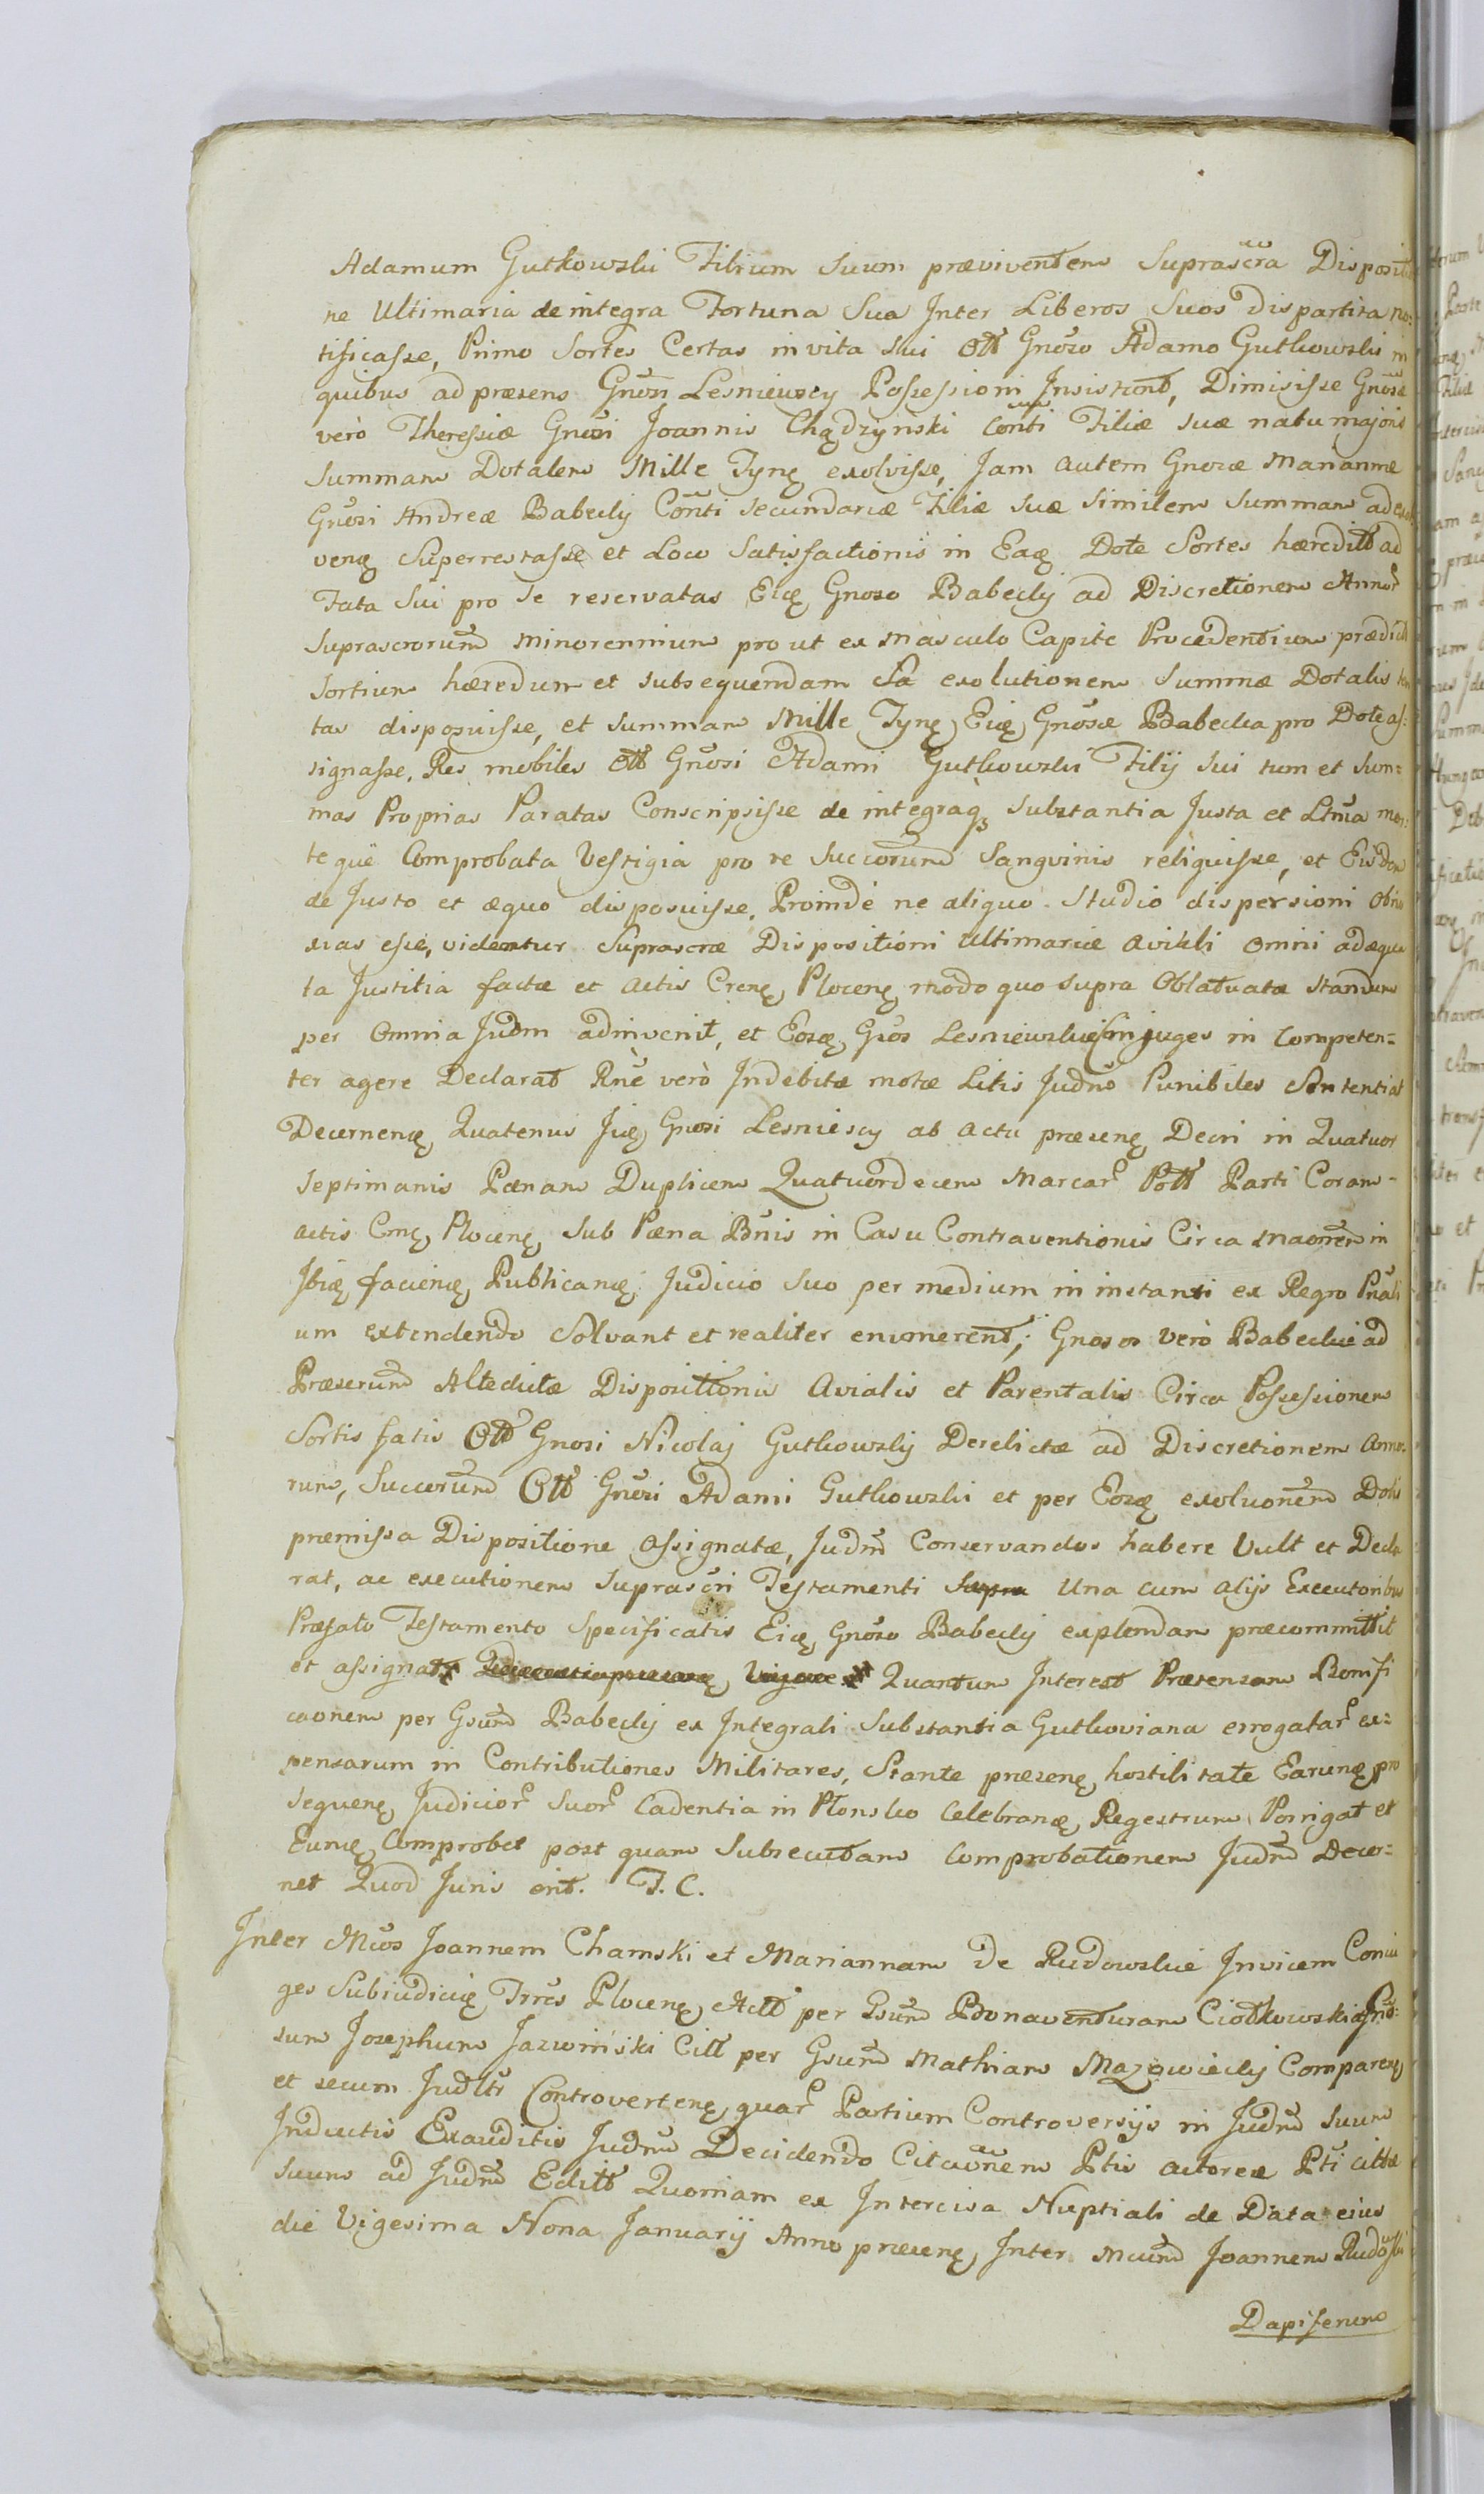 Adamum Gutkowski Filium suum præviventem Suprascra Dispositio
ne Ultimaria de integra Fortuna Sua Inter Liberos Suos dispartita no:
tificasse, Primo Sortes Certas in vita sui Ott Gnoso Adamo Gutkowski in
quibus ad præsens Gnosi Lesniewscy Possessioni Insistunt, Dimisisse Gnosæ
verò Theressiæ Gnosi Joannis Chądzyński Conti Filiæ suæ natu majoris
Summam Dotalem Mille Tynę exolvisse, Jam autem Gnosæ Mariannæ
Gnosi Andreæ Babecky Conti secundariæ Filiæ suæ Similem Summam ad exol
venę Superrestasse et Loco Satisfactionis in Eaę Dote Sortes hæredit ad
Fata Sui pro se reservatas Eię Gnoso Babecky ad Discretionem Annor
Suprascrorum minorennium pro ut ex masculo Capite Procedentium prædict
Sortium hæredum et subsequendam Sa exolutionem Summæ Dotalis
tas disposuisse, et Summam Mille Tynę Eię Gnosæ Babecka pro Dote as:
signasse, Res mobiles Ott Gnosi Adami Gutkowski Filij sui tum et Sum=
mas Proprias Paratas Conscripsisse de integraq substantia Justa et Ltma men:
te quë Comprobata Vestigia pro re Succorum Sangvinis reliquisse, et Eisdem
de Justo et æquo disposuisse, Proindè ne aliquo Studio dispersioni Obno
xias esse, videntur Suprascræ Dispositioni Ultimariæ avikli omni adæqua
ta Justitia factæ et actis Crenę Plocenę modo quo supra Oblatvatæ standum
per Omnia Judm adinvenit, et Eosę Gsos Lesniewskie Conjuges in Competen=
ter agere Declarat Rnè verò Indebitæ motæ Litis Judm Punibiles Sententiat
Decernenę Quatenus Jię Gnosi Lesniescy ab actu præsenę Decri in Quatuor
Septimanis Pœnam Duplicem Quatuordecem Marcar Poll Parti Coram
actis Crnę Plocenę Sub Pœna Bnis in Casu Contraventionis Circa Maonem in
Ibię facienę Publicanę Judicio Suo per medium in instanti ex Regro Pnali
um extendendo Solvant et realiter enumerent; Gnosos verò Babeckie ad
Præserum Altedictæ Dispositionis Avialis et Parentalis Circa Possessionem
Sortis fatis Ott Gnosi Nicolai Gutkowsky Derelictæ ad Discretionem anno
rum, Succorum Ott Gnosi Adami Gutkowski et per Eosę exoluonem Dotis
præmissa Dispositione assignatæ, Judm Conservandos habere Vult et Decla
rat, ac executionem Suprascri Testamenti Supra Una cum alijs Executoribus
Præfato Testamento Specificatis Eię Gnoso Babecky explendam præcommittit
et assignat Quantum Interest Prætensam Bonifi
caonem per Gsum Babecky ex Integrali Substantia Gutkoviana errogatar ex=
pensarum in Contributiones Militares, Stante præsenę hostilitate Earunę pro
sequenę Judicior Suor Cadentia in Płonsko Celebranę Regestrum Porrigat et
Eunię Comprobet post quam Subsecutam Comprobationem Judm Decer=
net Quod Juris erit. T. C.
Inter Mcos Joannem Chamski et Mariannam De Rudowskie Invicem Coniu
ges Subiudicię Trres Plocenę Act per Gsum Bonaventuram Ciołkowski et Gno:
sum Josephum Jazwiński Citt per Gsum Mathiam Mazowiecky Comparenę
et secum Judltr Controvertenę quar Partium Controversijs in Judm suum
Inductis Exauditis Judm Decidendo Citaonem Ptis actoreæ Pti cittæ
suum ad Judm Editt Quoniam ex Intercisa Nuptiali de Data eius
die Vigesima Nona Januarij Anno præsenę Inter Mcum Joannem Rudowski
Dapiferum